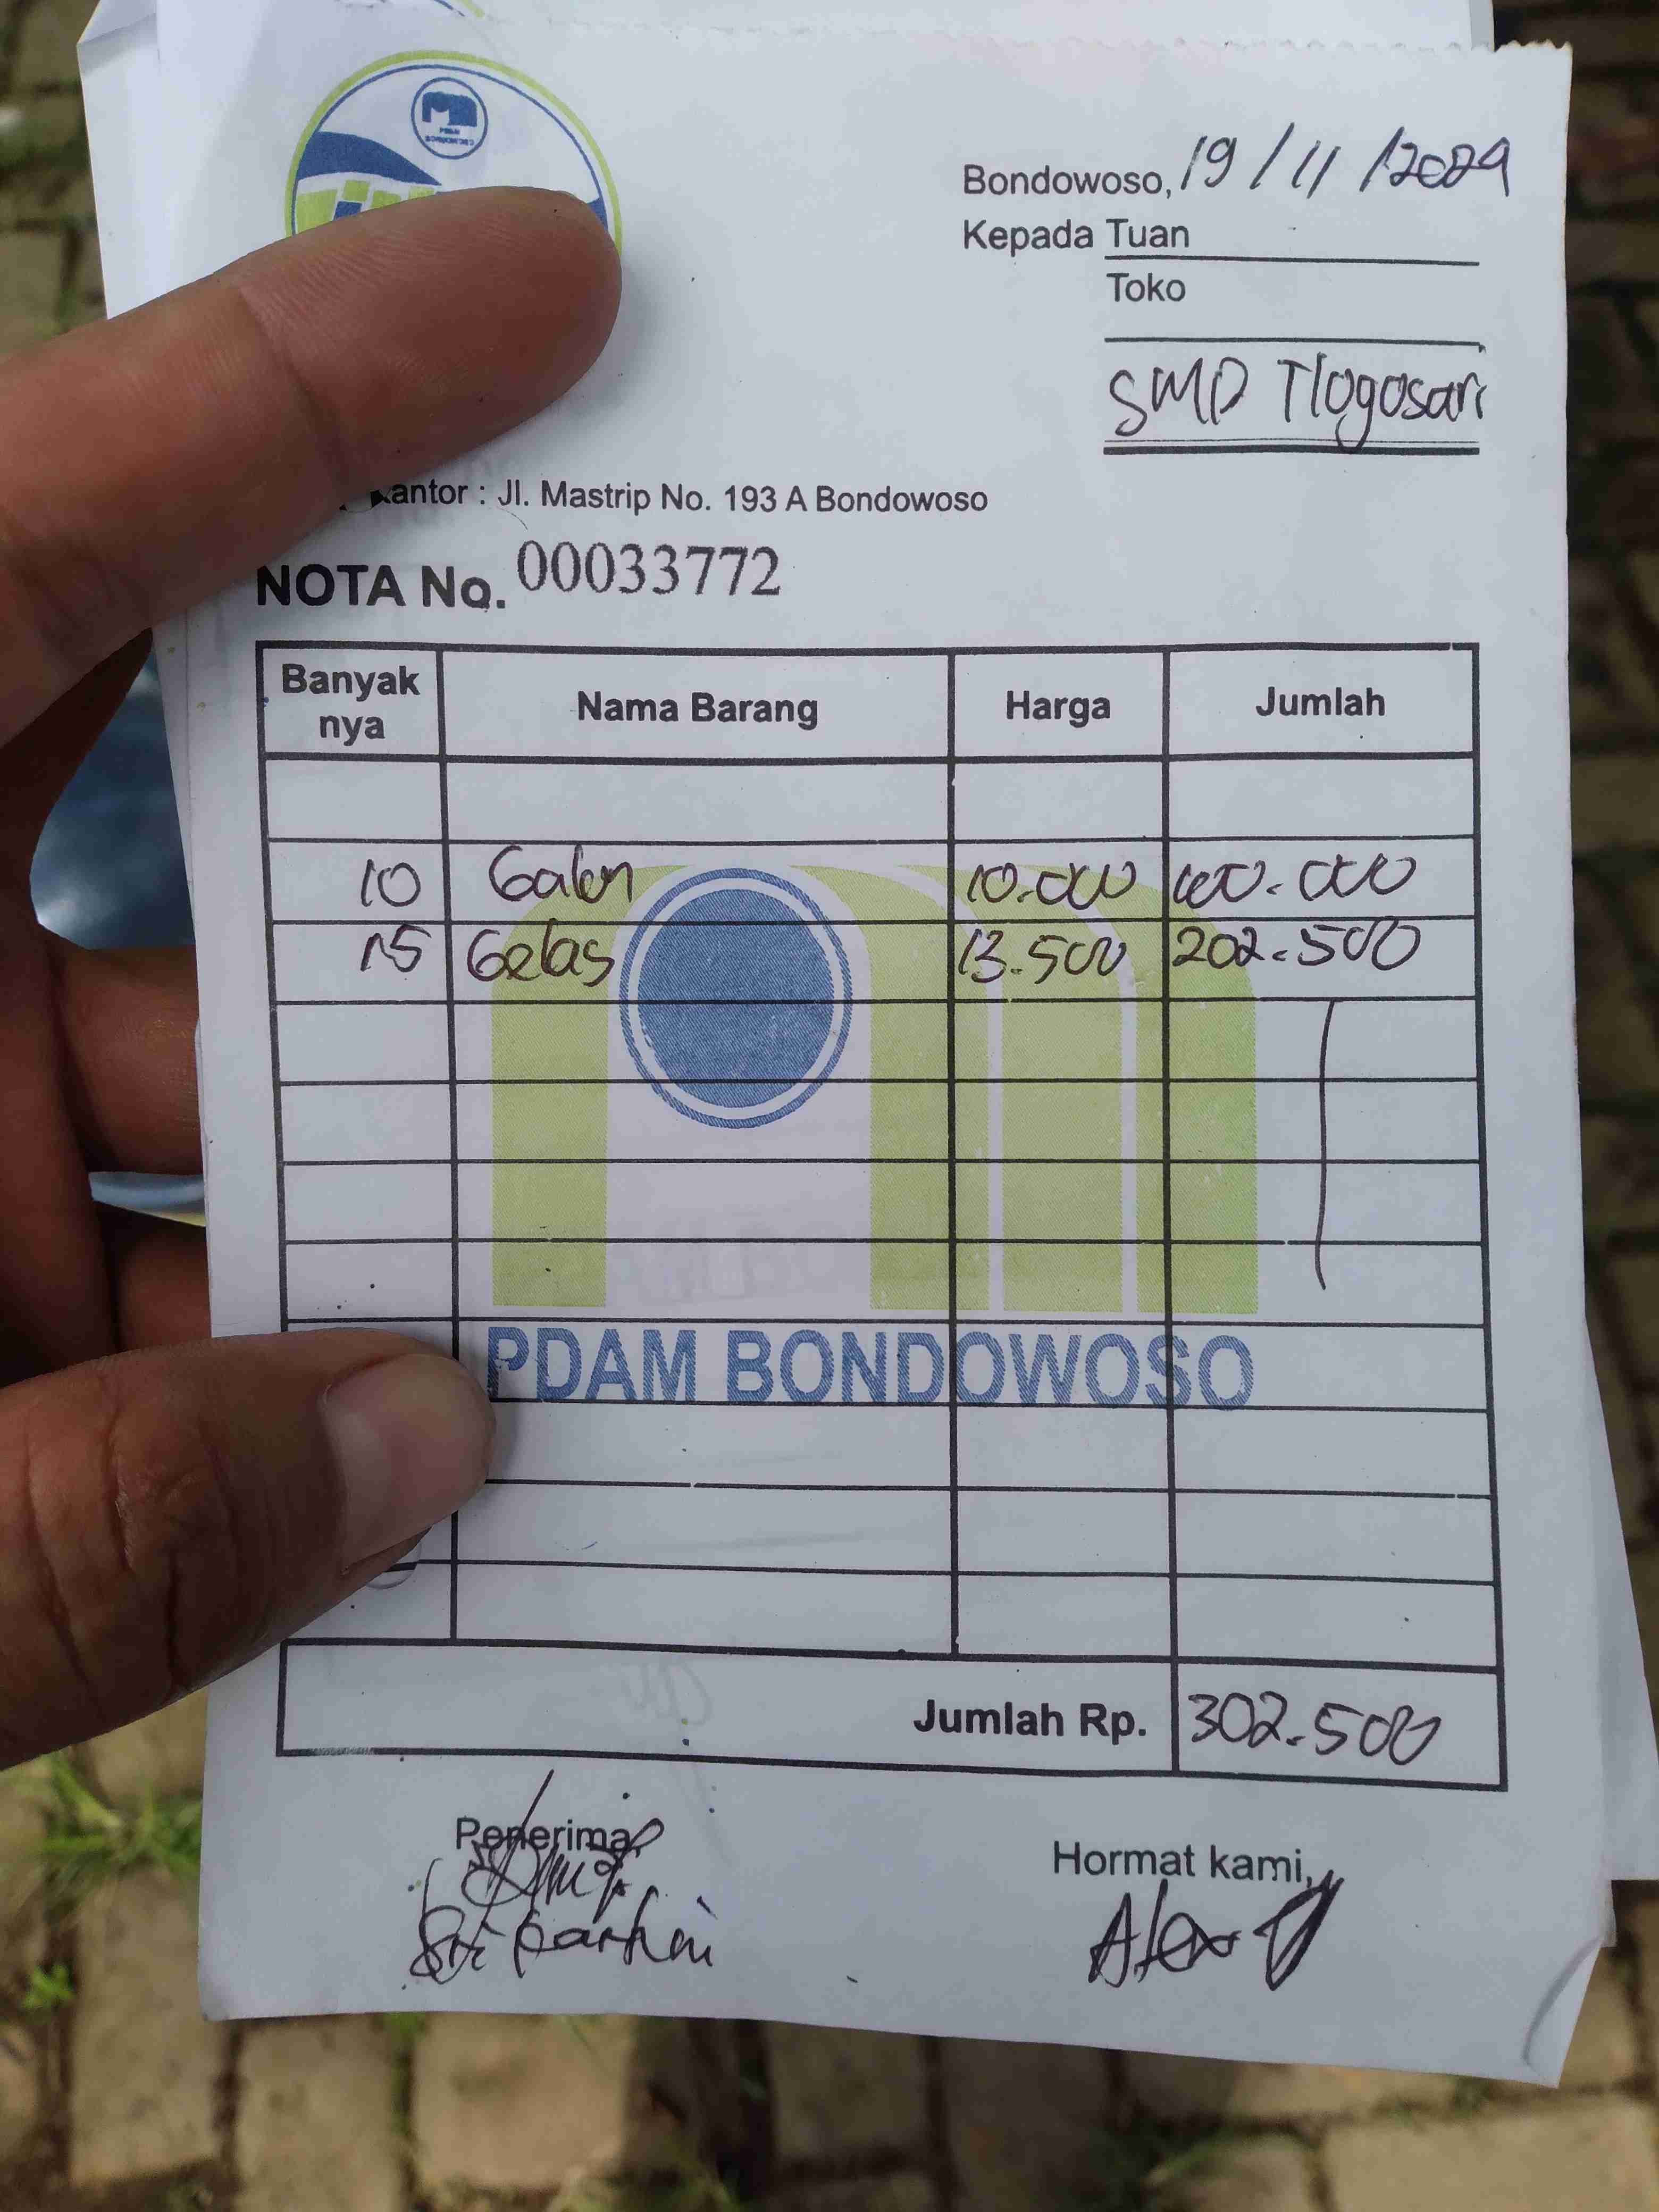 PDAM
BONDOWOSO
Bondowoso, 19/11/2024
Kepada Tuan
Toko
SMD Tlogosari
Kantor : Jl. Mastrip No. 193 A Bondowoso
NOTA No. 00033772
Banyak nya Nama Barang Harga Jumlah
10 Galon 10.000 100.000
15 Gelas 13.500 202.500
PDAM BONDOWOSO
Jumlah Rp. 302.500
Penerima Hormat kami,
Sri Kartini Alex